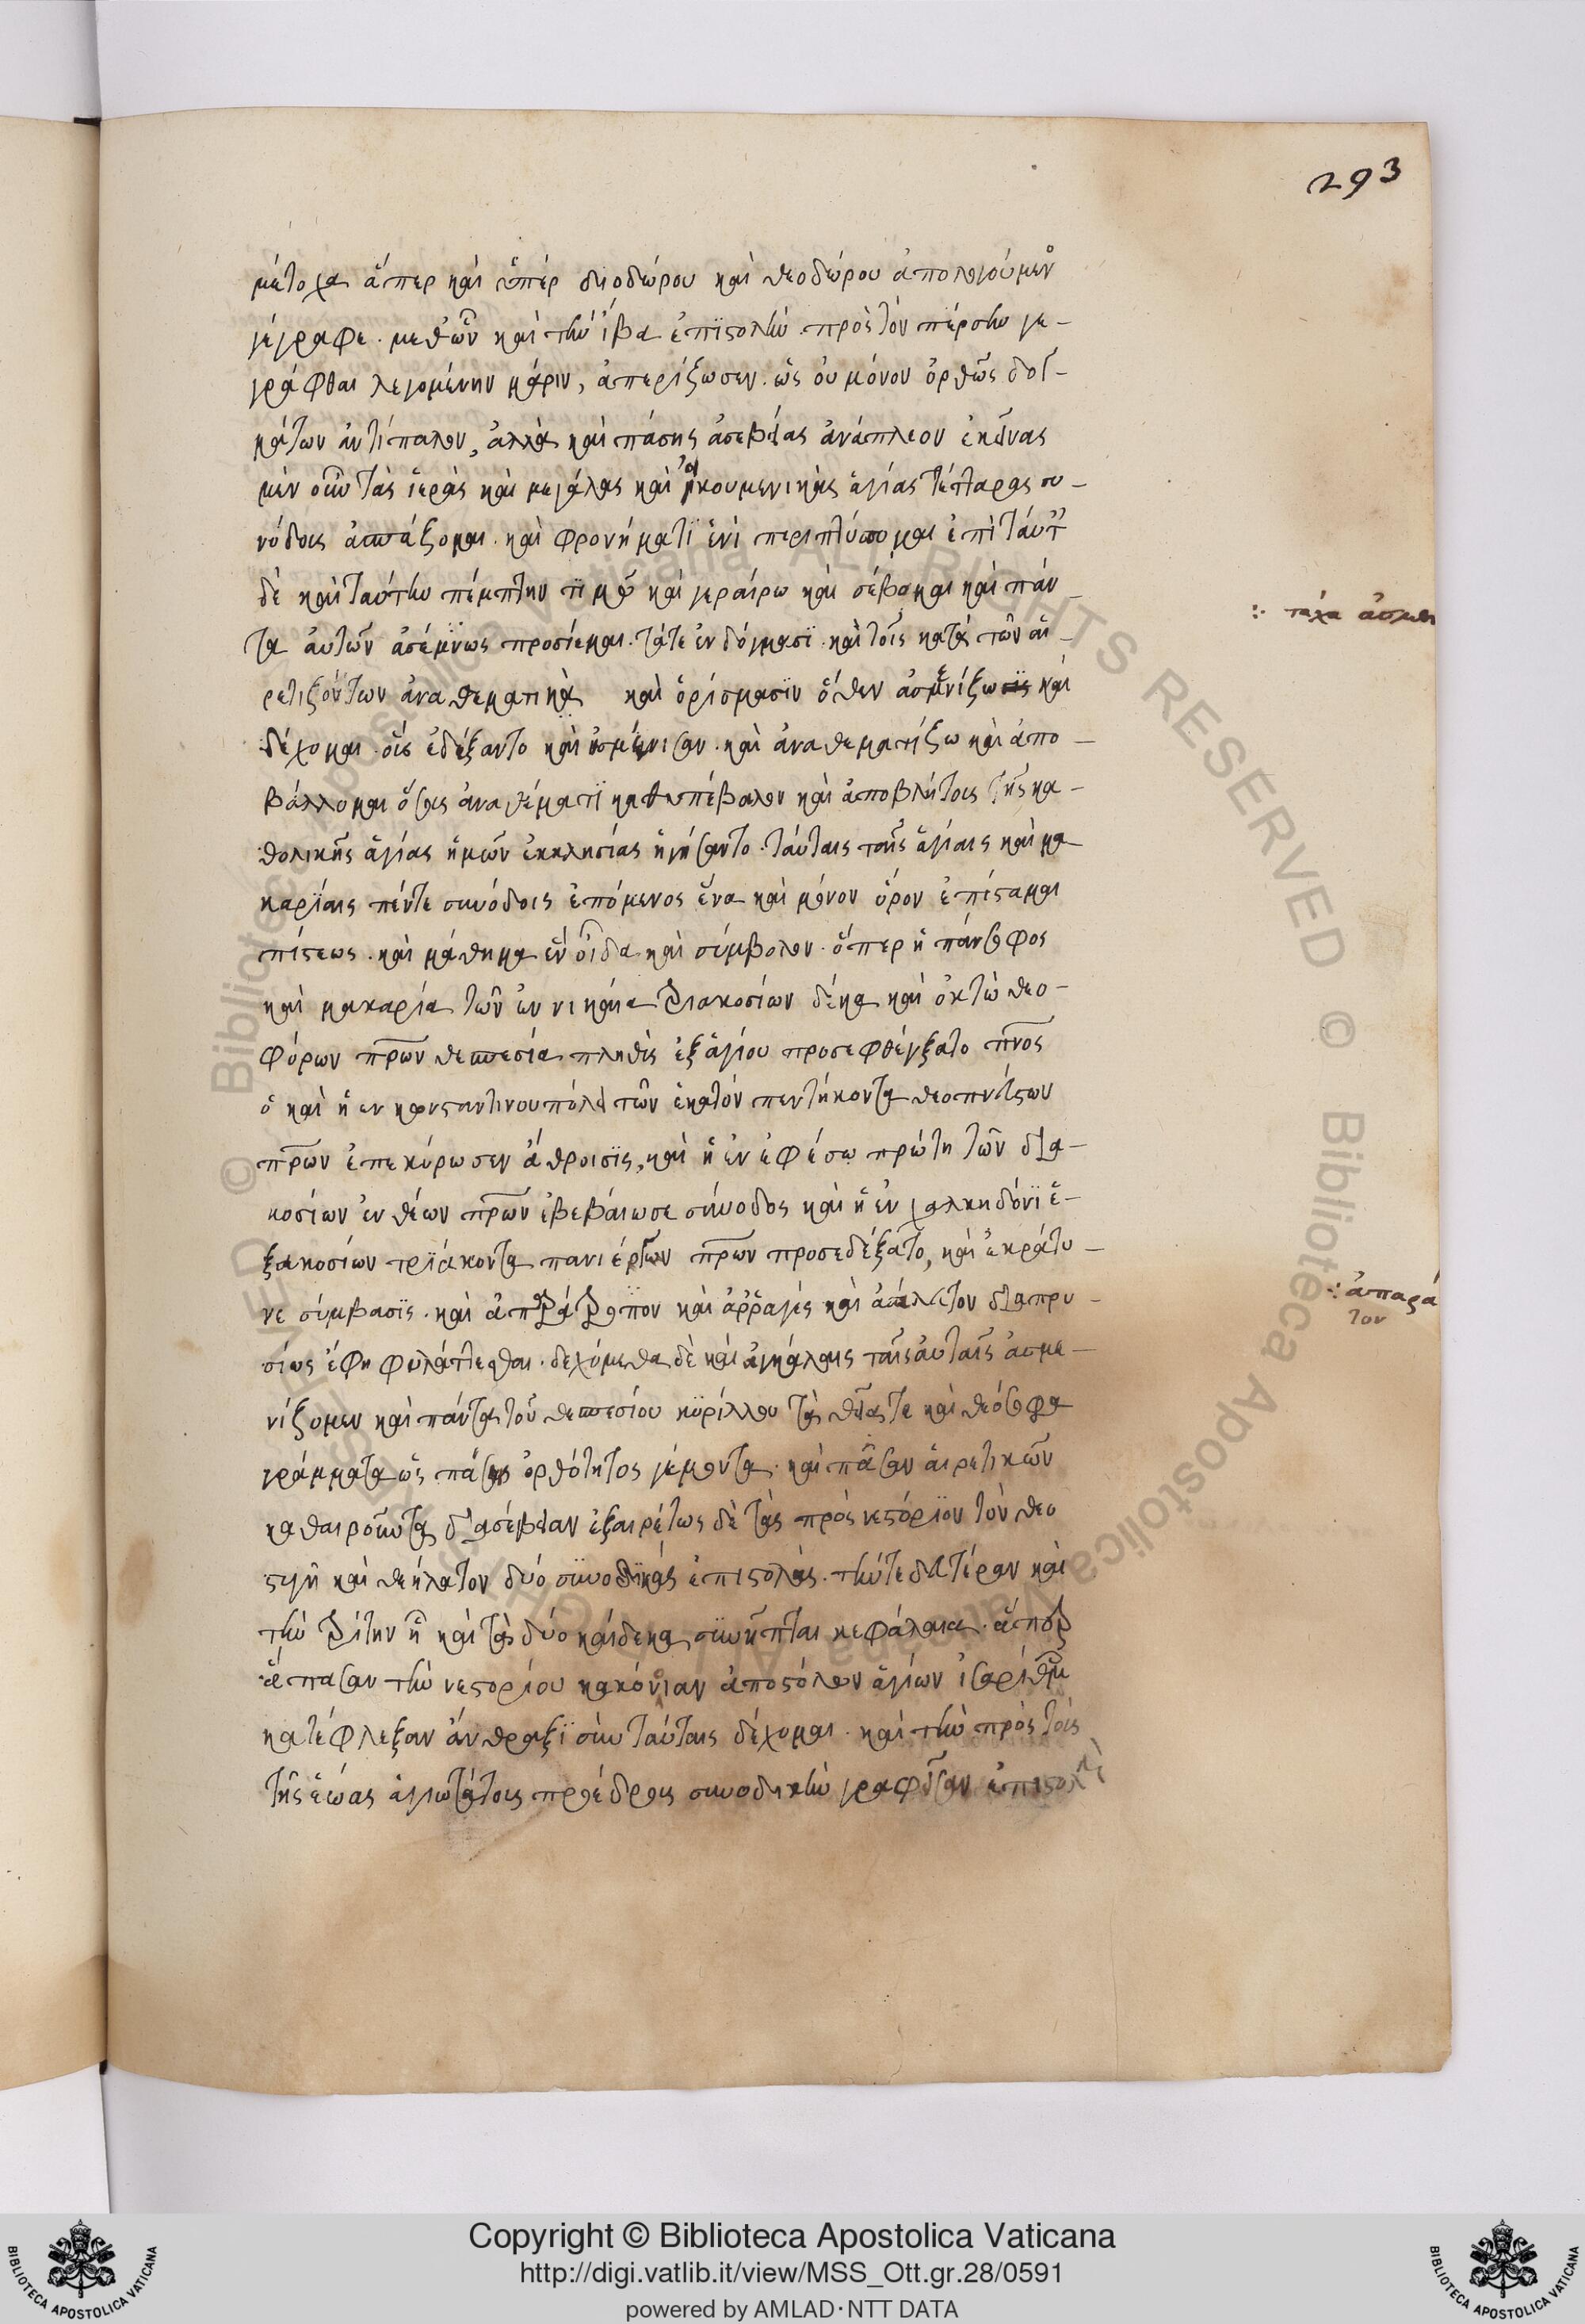 293
μέτοχα ἅπερ καὶ ὑπὲρ διοδώρου καὶ θεοδώρου ἀπολογούμενος
γέγραφε. μεθ' ὧν καὶ τὴν ἴβα ἐπιστολὴν πρὸς τὸν πέρσην γε-
γράφθαι λεγομένην μάριν, ἀπερίζωσεν. ὡς οὐ μόνον ὀρθῶς δογ-
μάτων ἀντίπαλον, ἀλλὰ καὶ πάσης ἀσεβείας ἀνάπλεον ἐκείνας
μὲν οὖν τὰς ἱερὰς καὶ μεγάλας καὶ οἰκουμενικὰς ἁγίας τέτταρας συ-
νόδους ἀσπάζομαι. καὶ φρονήματι ἑνὶ περιπτύσσομαι ἐπὶ ταύτ
δὲ καὶ ταύτην πέμπτην τιμῶ καὶ γεραίρω καὶ σέβομαι καὶ πάν-
τα αὐτῶν ἀσέμνως προσίεμαι. τάτε ἐν δόγμασι. καὶ τοῖς κατὰ τῶν αἱ-
ρετιζόντων ἀναθεματικὰ καὶ ὁρίσμασιν ὅθεν ἀσμενίζω καὶ
δέχομαι οὓς ἐδέξαντο καὶ ἠσμένισαν. καὶ ἀναθεματίζω καὶ ἀπο-
βάλλομαι ὅσους ἀναθέματι καθυπέβαλον καὶ ἀποβλήτους τῆς κα-
θολικῆς ἁγίας ἡμῶν ἐκκλησίας ἡγήσαντο. ταύταις ταῖς ἁγίαις καὶ μα-
καρίαις πέντε συνόδοις ἑπόμενος ἕνα καὶ μόνον ὅρον ἐπίσταμαι
πίστεως. καὶ μάθημα ἓν οἶδα καὶ σύμβολον. ὅπερ ἡ πάνσοφος
καὶ μακαρία τῶν ἐν νικαία τριακοσίων δέκα καὶ ὀκτὼ θεο-
φόρων πρων θεσπεσία πληθὺς ἐξ ἁγίου προσεφθέγξατο πνος
ὃ καὶ ἡ ἐν κωνσταντινουπόλει τῶν ἑκατὸν πεντήκοντα θεοπνεύστων
πρων ἐπεκύρωσεν ἄθροισις, καὶ ἡ ἐν ἐφέσω πρώτη τῶν δια-
κοσίων ἐνθέων πρων ἐβεβαίωσε σύνοδος καὶ ἡ ἐν χαλκηδόνι ἑ-
ξακοσίων τριάκοντα πανιέρων πρων προσεδέξατο, καὶ ἐκράτυ-
νε σύμβασις. καὶ ἀπαράτρωπον καὶ ἀρραγὲς καὶ ἀσάλευτον διαπρυ-
σίως ἔφη φυλάττεσθαι. δεχόμεθα δὲ καὶ ἀγκάλαις ταῖς αὐταῖς ἀσμε-
νίζομεν καὶ πάντα τοῦ θεσπεσίου κυρίλλου τὰ θεῖά τε καὶ θεόσοφα
γράμματα ὡς πάσης ὀρθότητος γέμοντα. καὶ πᾶσαν αἱρετικῶν
καθαιροῦντα δυσσέβειαν ἐξαιρέτως δὲ τὰς πρὸς νεστόριον τὸν θεο
στυγῆ καὶ θεήλατον δύο συνοδικὰς ἐπιστολὰς. τήν τε δευτέραν καὶ
τὴν τρίτην ᾗ καὶ τὰ δύο καίδεκα συνῆπται κεφάλαια. ἅπερ
ἅπασαν τὴν νεστορίου κακόνοιαν ἀποστόλων ἁγίων ἰσαρίθμ
κατέφλεξαν ἄνθραξι σὺν ταύταις δέχομαι. καὶ τὴν πρὸς τοὺς
τῆς ἑώας ἁγιωτάτους προέδρους συνοδικὴν γραφεῖσαν ἐπιστολὴ
:· τάχα ἀσμεν
:· ἀπαρά
τον
Copyright © Biblioteca Apostolica Vaticana
http://digi.vatlib.it/view/MSS_Ott.gr.28/0591
powered by AMLAD·NTT DATA